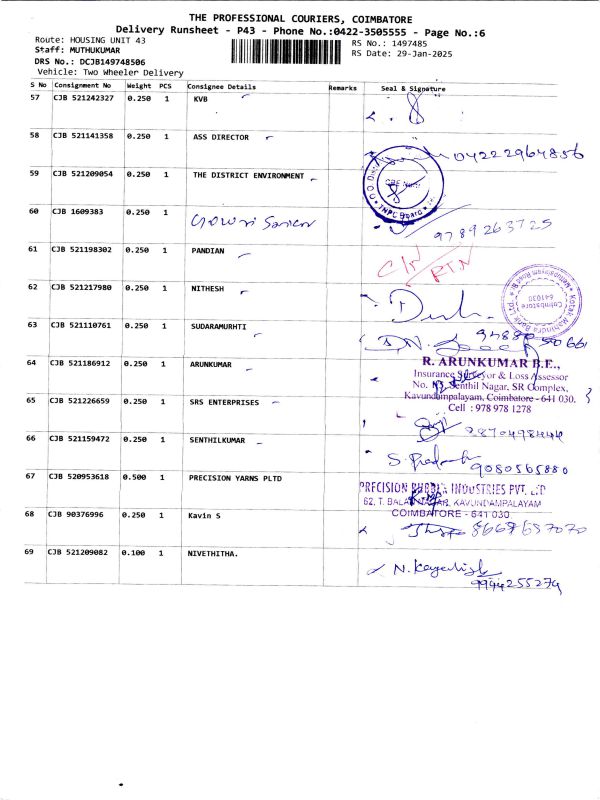 THE PROFESSIONAL COURIERS, COIMBATORE
Delivery Runsheet - P43 - Phone No.:0422-3505555 - Page No.:6
Route: HOUSING UNIT 43
RS No.: 1497485
Staff: MUTHUKUMAR
RS Date: 29-Jan-2025
DRS No.: DCJB149748506
Vehicle: Two Wheeler Delivery
S No Consignment No Weight PCS Consignee Details Remarks Seal & Signature
57 CJB 521242327 0.250 1 KVB
58 CJB 521141358 0.250 1 ASS DIRECTOR
04222964856
59 CJB 521209054 0.250 1 THE DISTRICT ENVIRONMENT
TNPC Board
60 CJB 1609383 0.250 1
9789263725
61 CJB 521198302 0.250 1 PANDIAN
C/N
RTN
62 CJB 521217980 0.250 1 NITHESH
Kotak Mahindra Bank Ltd
Coimbatore
641030
63 CJB 521110761 0.250 1 SUDARAMURHTI
64 CJB 521186912 0.250 1 ARUNKUMAR
R. ARUNKUMAR B.E.,
Insurance Surveyor & Loss Assessor
Senthil Nagar, SR Complex,
Kavundampalayam, Coimbatore - 641 030.
Cell : 978 978 1278
65 CJB 521226659 0.250 1 SRS ENTERPRISES
66 CJB 521159472 0.250 1 SENTHILKUMAR
9080565880
67 CJB 520953618 0.500 1 PRECISION YARNS PLTD
PRECISION INDUSTRIES PVT. LTD
KAVUNDAMPALAYAM
COIMBATORE - 641 030
68 CJB 90376996 0.250 1 Kavin S
69 CJB 521209082 0.100 1 NIVETHITHA.
9944255279